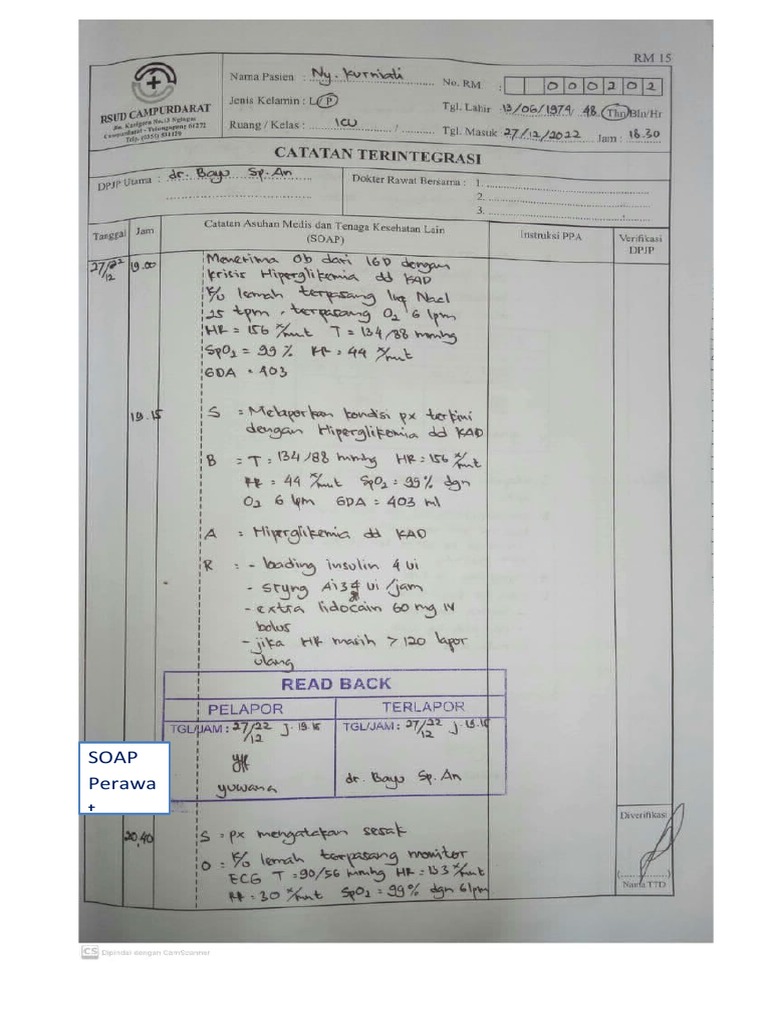 RM 15
RSUD CAMPURDARAT
Campurdarat - Tulungagung 61272
Nama Pasien : Ny. Kurniati
No. RM : 000202
Jenis Kelamin : L/P
Tgl. Lahir 13/06/1974 48 Thn/Bln/Hr
Ruang / Kelas : ICU /
Tgl. Masuk 27/12/2022 Jam : 18.30
CATATAN TERINTEGRASI
DPJP Utama : dr. Bayu Sp. An
Dokter Rawat Bersama : 1.
2.
3.
Tanggal
Jam
Catatan Asuhan Medis dan Tenaga Kesehatan Lain
(SOAP)
Instruksi PPA
Verifikasi
DPJP
27/22
12
19.00
Menerima Ob dari IGD dengan
krisis Hiperglikemia dd KAD
K/u lemah terpasang Nacl
25 tpm, terpasang O2 6 lpm
HR = 156 x/mnt T = 134/88 mmHg
SpO2 = 99 % RR = 44 x/mnt
GDA = 403
19.15
S = Melaporkan kondisi px terkini
dengan Hiperglikemia dd KAD
B = T = 134/88 mmHg HR = 156 x/mnt
RR = 44 x/mnt SpO2 = 99% dgn
O2 6 lpm GDA = 403 ml
A = Hiperglikemia dd KAD
R = - loading insulin 4 ui
- ui /jam
- extra lidocain 60 mg IV
bolus
- jika HR masih > 120 lapor
ulang
READ BACK
PELAPOR
TERLAPOR
TGL/JAM : 27/22 j. 19.15
12
TGL/JAM : 27/22 j. 19.15
12
yuwana
dr. Bayu Sp. An
SOAP
Perawa
t
20.40
S = px mengatakan sesak
O = K/u lemah terpasang monitor
ECG T = 90/56 mmHg HR = 133 x/mnt
RR = 30 x/mnt SpO2 = 99% dgn 6 lpm
Diverifikasi
(..............)
Nama TTD
CS Dipindai dengan CamScanner